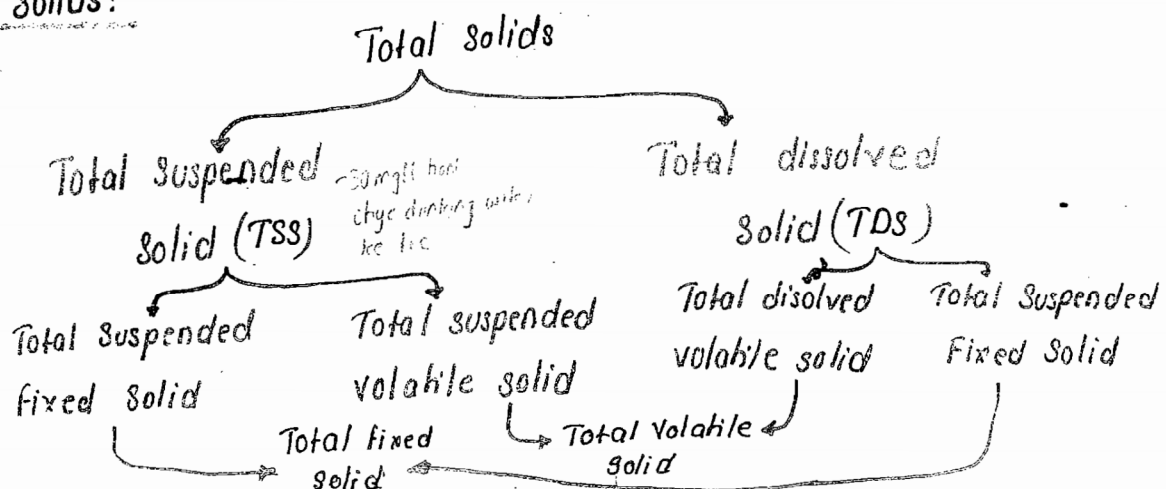 Solids:
Total Solids
Total Suspended
Solid (TSS)
Total dissolved
Solid (TDS)
Total Suspended
fixed Solid
Total suspended
volatile solid
Total disolved
volatile solid
Total Suspended
Fixed Solid
Total fixed
solid
Total Volatile
solid